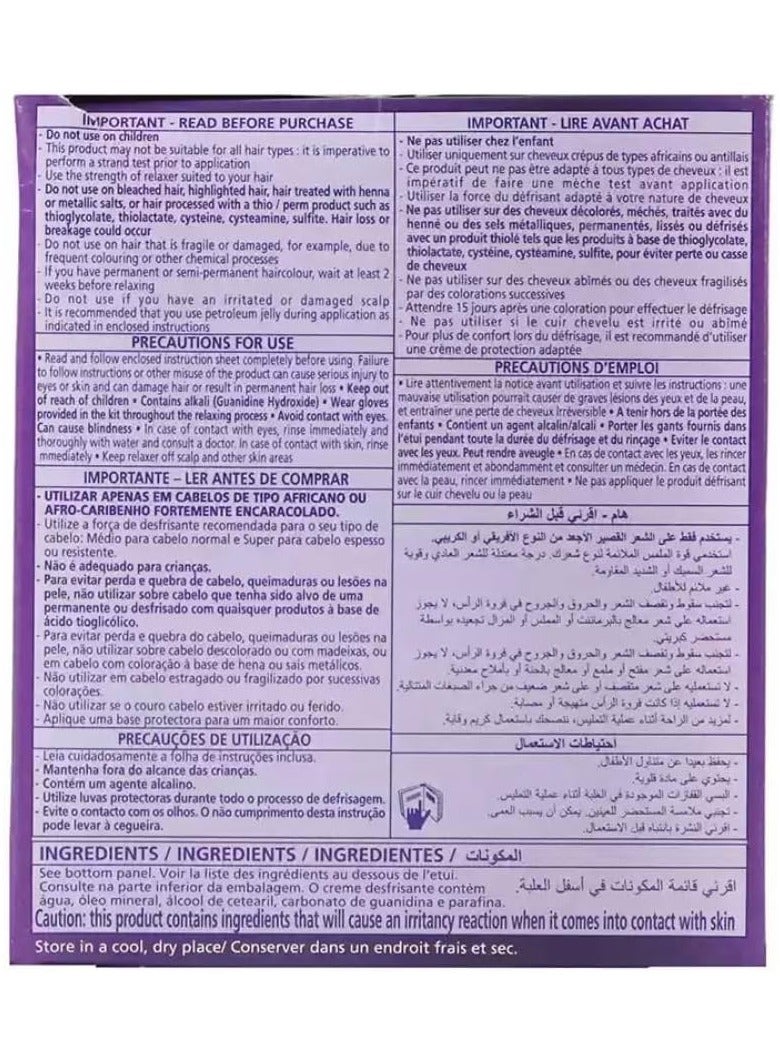 IMPORTANT - READ BEFORE PURCHASE
- Do not use on children
- This product may not be suitable for all hair types : it is imperative to
perform a strand test prior to application
- Use the strength of relaxer suited to your hair
- Do not use on bleached hair, highlighted hair, hair treated with henna
or metallic salts, or hair processed with a thio / perm product such as
thioglycolate, thiolactate, cysteine, cysteamine, sulfite. Hair loss or
breakage could occur
- Do not use on hair that is fragile or damaged, for example, due to
frequent colouring or other chemical processes
- If you have permanent or semi-permanent haircolour, wait at least 2
weeks before relaxing
- Do not use if you have an irritated or damaged scalp
- It is recommended that you use petroleum jelly during application as
indicated in enclosed instructions
PRECAUTIONS FOR USE
• Read and follow enclosed instruction sheet completely before using. Failure
to follow instructions or other misuse of the product can cause serious injury to
eyes or skin and can damage hair or result in permanent hair loss • Keep out
of reach of children • Contains alkali (Guanidine Hydroxide) • Wear gloves
provided in the kit throughout the relaxing process • Avoid contact with eyes.
Can cause blindness • In case of contact with eyes, rinse immediately and
thoroughly with water and consult a doctor. In case of contact with skin, rinse
mmediately • Keep relaxer off scalp and other skin areas
IMPORTANTE – LER ANTES DE COMPRAR
- UTILIZAR APENAS EM CABELOS DE TIPO AFRICANO OU
AFRO-CARIBENHO FORTEMENTE ENCARACOLADO.
- Utilize a força de desfrisante recomendada para o seu tipo de
cabelo: Médio para cabelo normal e Super para cabelo espesso
ou resistente.
- Não é adequado para crianças.
- Para evitar perda e quebra de cabelo, queimaduras ou lesões na
pele, não utilizar sobre cabelo que tenha sido alvo de uma
permanente ou desfrisado com quaisquer produtos à base de
ácido tioglicólico.
- Para evitar perda e quebra do cabelo, queimaduras ou lesões na
pele, não utilizar sobre cabelo descolorado ou com madeixas, ou
em cabelo com coloração à base de hena ou sais metálicos.
- Não utilizar em cabelo estragado ou fragilizado por sucessivas
colorações.
- Não utilizar se o couro cabelo estiver irritado ou ferido.
- Aplique uma base protectora para um maior conforto.
PRECAUÇÕES DE UTILIZAÇÃO
- Leia cuidadosamente a folha de instruções inclusa.
- Mantenha fora do alcance das crianças.
- Contém um agente alcalino.
- Utilize luvas protectoras durante todo o processo de defrisagem.
- Evite o contacto com os olhos. O não cumprimento desta instrução
pode levar à cegueira.
IMPORTANT - LIRE AVANT ACHAT
- Ne pas utiliser chez l'enfant
- Utiliser uniquement sur cheveux crépus de types africains ou antillais
- Ce produit peut ne pas être adapté à tous types de cheveux : il est
impératif de faire une mèche test avant application
- Utiliser la force du défrisant adapté à votre nature de cheveux
- Ne pas utiliser sur des cheveux décolorés, méchés, traités avec du
henné ou des sels métalliques, permanentés, lissés ou défrisés
avec un produit thiolé tels que les produits à base de thioglycolate,
thiolactate, cystéine, cystéamine, sulfite, pour éviter perte ou casse
de cheveux
- Ne pas utiliser sur des cheveux abîmés ou des cheveux fragilisés
par des colorations successives
- Attendre 15 jours après une coloration pour effectuer le défrisage
- Ne pas utiliser si le cuir chevelu est irrité ou abîmé
- Pour plus de confort lors du défrisage, il est recommandé d'utiliser
une crème de protection adaptée
PRECAUTIONS D'EMPLOI
• Lire attentivement la notice avant utilisation et suivre les instructions : une
mauvaise utilisation pourrait causer de graves lésions des yeux et de la peau,
et entraîner une perte de cheveux irréversible • A tenir hors de la portée des
enfants • Contient un agent alcalin/alcali • Porter les gants fournis dans
l'étui pendant toute la durée du défrisage et du rinçage • Eviter le contact
avec les yeux. Peut rendre aveugle • En cas de contact avec les yeux, les rincer
immédiatement et abondamment et consulter un médecin. En cas de contact
avec la peau, rincer immédiatement • Ne pas appliquer le produit défrisant
sur le cuir chevelu ou la peau
هام - اقرئي قبل الشراء
- يستخدم فقط على الشعر القصير الأجعد من النوع الأفريقي أو الكريبي.
استخدمي قوة الملمس الملائمة لنوع شعرك. درجة معتدلة للشعر العادي وقوية
للشعر السميك أو الشديد المقاومة.
- غير ملائم للأطفال.
- لتجنب سقوط وتقصف الشعر والحروق والجروح في فروة الرأس، لا يجوز
استعماله على شعر معالج بالبرماننت أو المملس أو المزال تجعيده بواسطة
مستحضر كبريتي.
- لتجنب سقوط وتقصف الشعر والحروق والجروح في فروة الرأس، لا يجوز
استعماله على شعر مفتح أو ملمع أو معالج بالحنة أو بأملاح معدنية.
- لا تستعمليه على شعر متقصف أو على شعر ضعيف من جراء الصبغات المتتالية.
- لا تستعمليه إذا كانت فروة الرأس متهيجة أو مصابة.
- لمزيد من الراحة أثناء عملية التمليس، ننصحك باستعمال كريم وقاية.
احتياطات الاستعمال
- يحفظ بعيدا عن متناول الأطفال.
- يحتوي على مادة قلوية.
- البسي القفازات الموجودة في العلبة أثناء عملية التمليس.
- تجنبي ملامسة المستحضر للعينين. يمكن أن يسبب العمى.
- اقرئي النشرة بانتباه قبل الاستعمال.
INGREDIENTS / INGREDIENTS / INGREDIENTES / المكونات
See bottom panel. Voir la liste des ingrédients au dessous de l'etui.
Consulte na parte inferior da embalagem. O creme desfrisante contém
água, óleo mineral, álcool de cetearil, carbonato de guanidina e parafina.
اقرئي قائمة المكونات في أسفل العلبة.
Caution: this product contains ingredients that will cause an irritancy reaction when it comes into contact with skin
Store in a cool, dry place/ Conserver dans un endroit frais et sec.